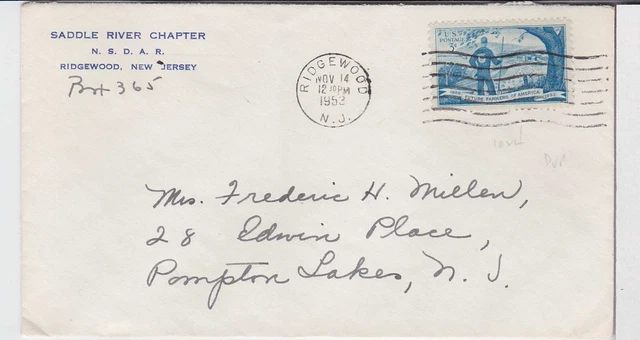 SADDLE RIVER CHAPTER
N. S. D. A. R.
RIDGEWOOD, NEW JERSEY
Box 365
RIDGEWOOD
NOV 14
12 30 PM
1953
N.J.
U.S.
POSTAGE
3¢
1928 FUTURE FARMERS OF AMERICA 1953
Mrs. Frederic H. Millen,
28 Edwin Place,
Pompton Lakes, N. J.